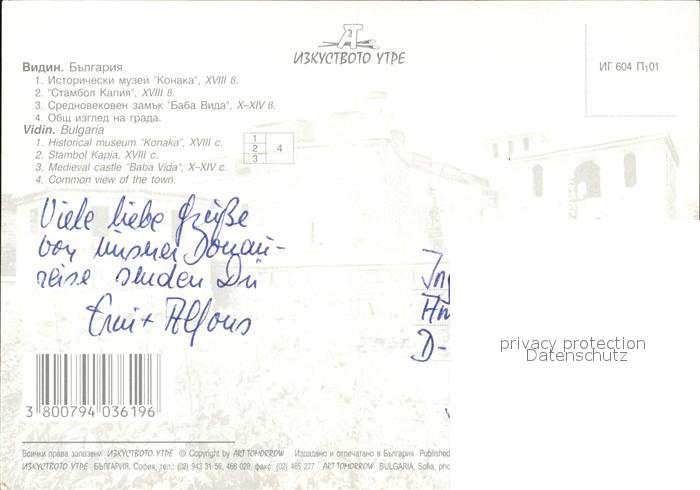 ИЗКУСТВОТО УТРЕ
ИГ 604 П₁01
Видин. България
1. Исторически музей "Конака", XVIII в.
2. "Стамбол Капия", XVIII в.
3. Средновековен замък "Баба Вида", X–XIV в.
4. Общ изглед на града.
Vidin. Bulgaria
1. Historical museum "Konaka", XVIII c.
2. Stambol Kapia, XVIII c.
3. Medieval castle "Baba Vida", X–XIV c.
4. Common view of the town.
1
2
3
4
Viele liebe Grüße
von unserer Donau-
reise senden Dir
+ Alfons
D-
privacy protection
Datenschutz
3 800794 036196
Всички права запазени ИЗКУСТВОТО УТРЕ © Copyright by ART TOMORROW Издадено и отпечатано в България Published
ИЗКУСТВОТО УТРЕ БЪЛГАРИЯ, София, тел.: (02) 943 31 56, 466 028, факс: (02) 465 277 ART TOMORROW BULGARIA, Sofia,